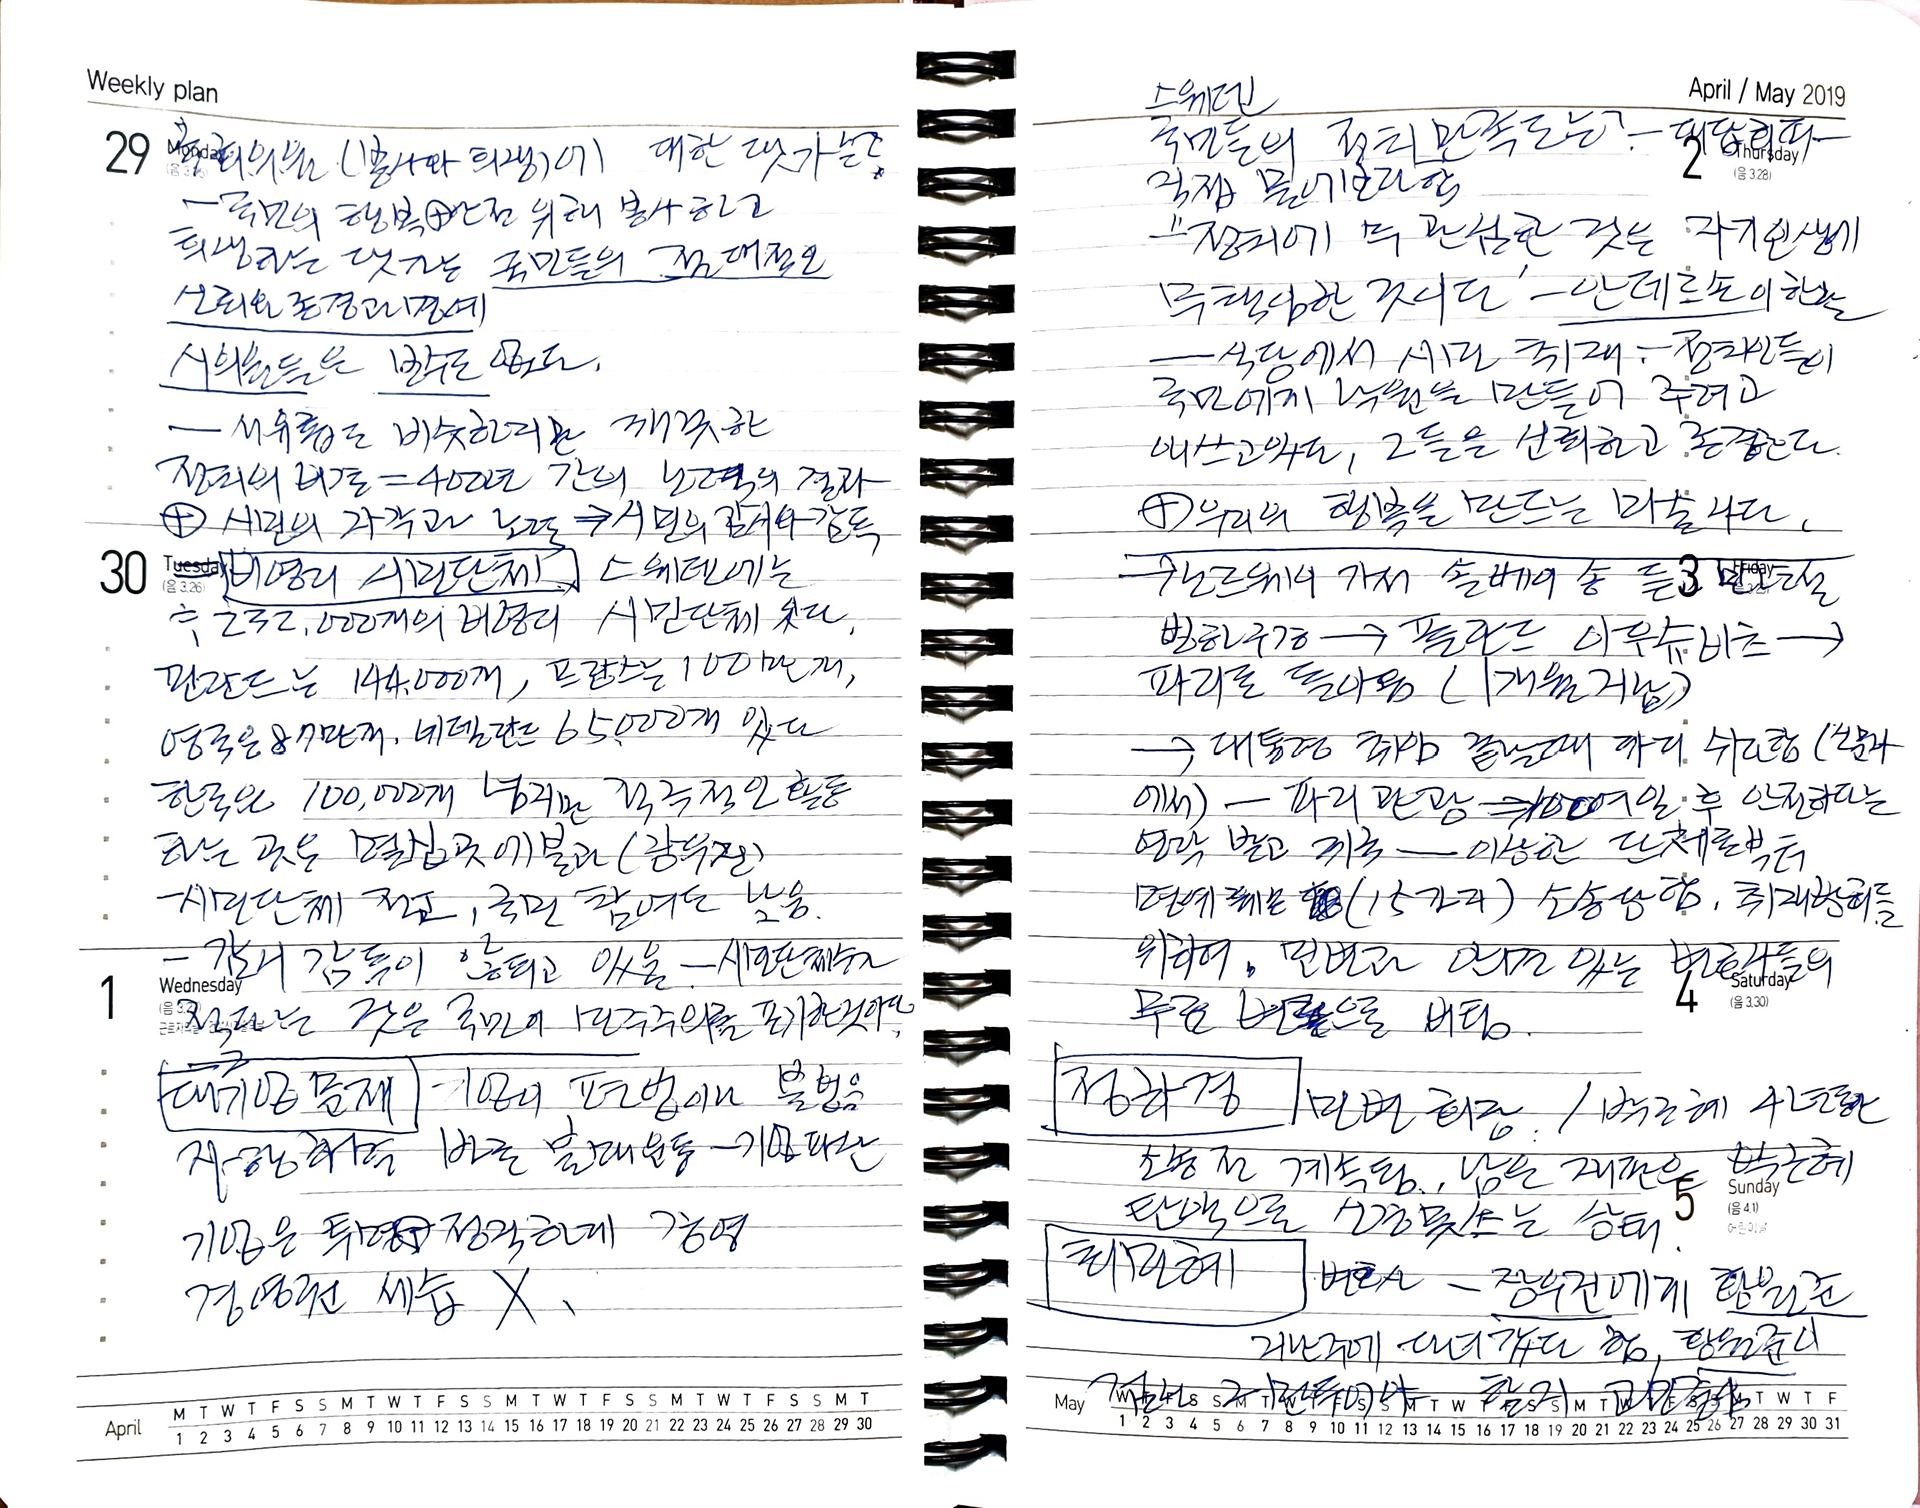 Weekly plan
29 Monday
국회의원 (봉사와 희생)에 대한 댓가는?
— 국민의 행복⊕안전 위해 봉사하고
희생하는 댓가는 국민들의 절대적인
신뢰와 존경과 명예
시의원들은 보수도 없다.
— 서유럽도 비슷하리만 깨끗한
정치의 비결 = 400년 간의 노력의 결과
⊕ 시민의 자각과 노력 ⇒ 시민의 감시와 감독
30 Tuesday
(음 3.26)
비영리 시민단체 스웨덴에는
2,000개의 비영리 시민단체 있다.
핀란드는 144,000개, 프랑스는 100만개,
영국은 87만개. 네덜란드 65,000개 있다
한국은 100,000개 넘지만 적극적인 활동
하는 곳은 몇십곳에 불과 (광우전)
- 시민단체 적고, 국민 참여도 낮음.
- 감시 감독이 않되고 있음 — 시민단체수가
1 Wednesday
적다는 것은 국민이 민주주의를 포기한것이다
대기업 문제 기업이 편법이나 불법을
자행하면 바로 불매운동 — 기업파산
기업은 투명⊕정직하게 경영
경영권 세습 X.
April
M T W T F S S M T W T F S S M T W T F S S M T W T F S S M T
1 2 3 4 5 6 7 8 9 10 11 12 13 14 15 16 17 18 19 20 21 22 23 24 25 26 27 28 29 30
April / May 2019
스웨덴
국민들의 정치 만족도는? — 대답회피 —
2 Thursday
(음 3.28)
직접 물어보라함
"정치에 무관심한 것은 자기인생에
무책임한 것이다" — 안데르손이 한말
— 식당에서 시민 취재 : — 정치인들이
국민에게 낙원을 만들어 주려고
애쓰고있다, 그들을 신뢰하고 존경한다.
⊕ 우리의 행복을 만드는 마술사다.
3 Friday
→ 노르웨이 가서 솔베이 송 듣고 핀란드로
→ 폴란드 아우슈비츠 →
파리로 돌아옴 (1개월 걸림)
→ 대통령 취임 끝날때 까지
에서) — 파리 관광 → 100여일 후 안전하다는
연락 받고 귀국 — 이상한 단체로부터
명예훼손 (15가지) 소송당함. 취재한 것들
위하여. 민변과 안면 있는 변호사들의
4 Saturday
(음 3.30)
무료 변론으로 버팀.
정하경 민변 회장. / 박근혜 4년동안
소송전 계속됨., 남은 재판은 박근혜
5 Sunday
(음 4.1)
어린이날
탄핵으로 신경못쓰는 상태.
최민혜 변호사 — 장우전에게 함원준
지난주에 다녀갔다 함, 함원준이
May
W T F S S M T W T F S S M T W T F S S M T W T F S S M T W T F
1 2 3 4 5 6 7 8 9 10 11 12 13 14 15 16 17 18 19 20 21 22 23 24 25 26 27 28 29 30 31